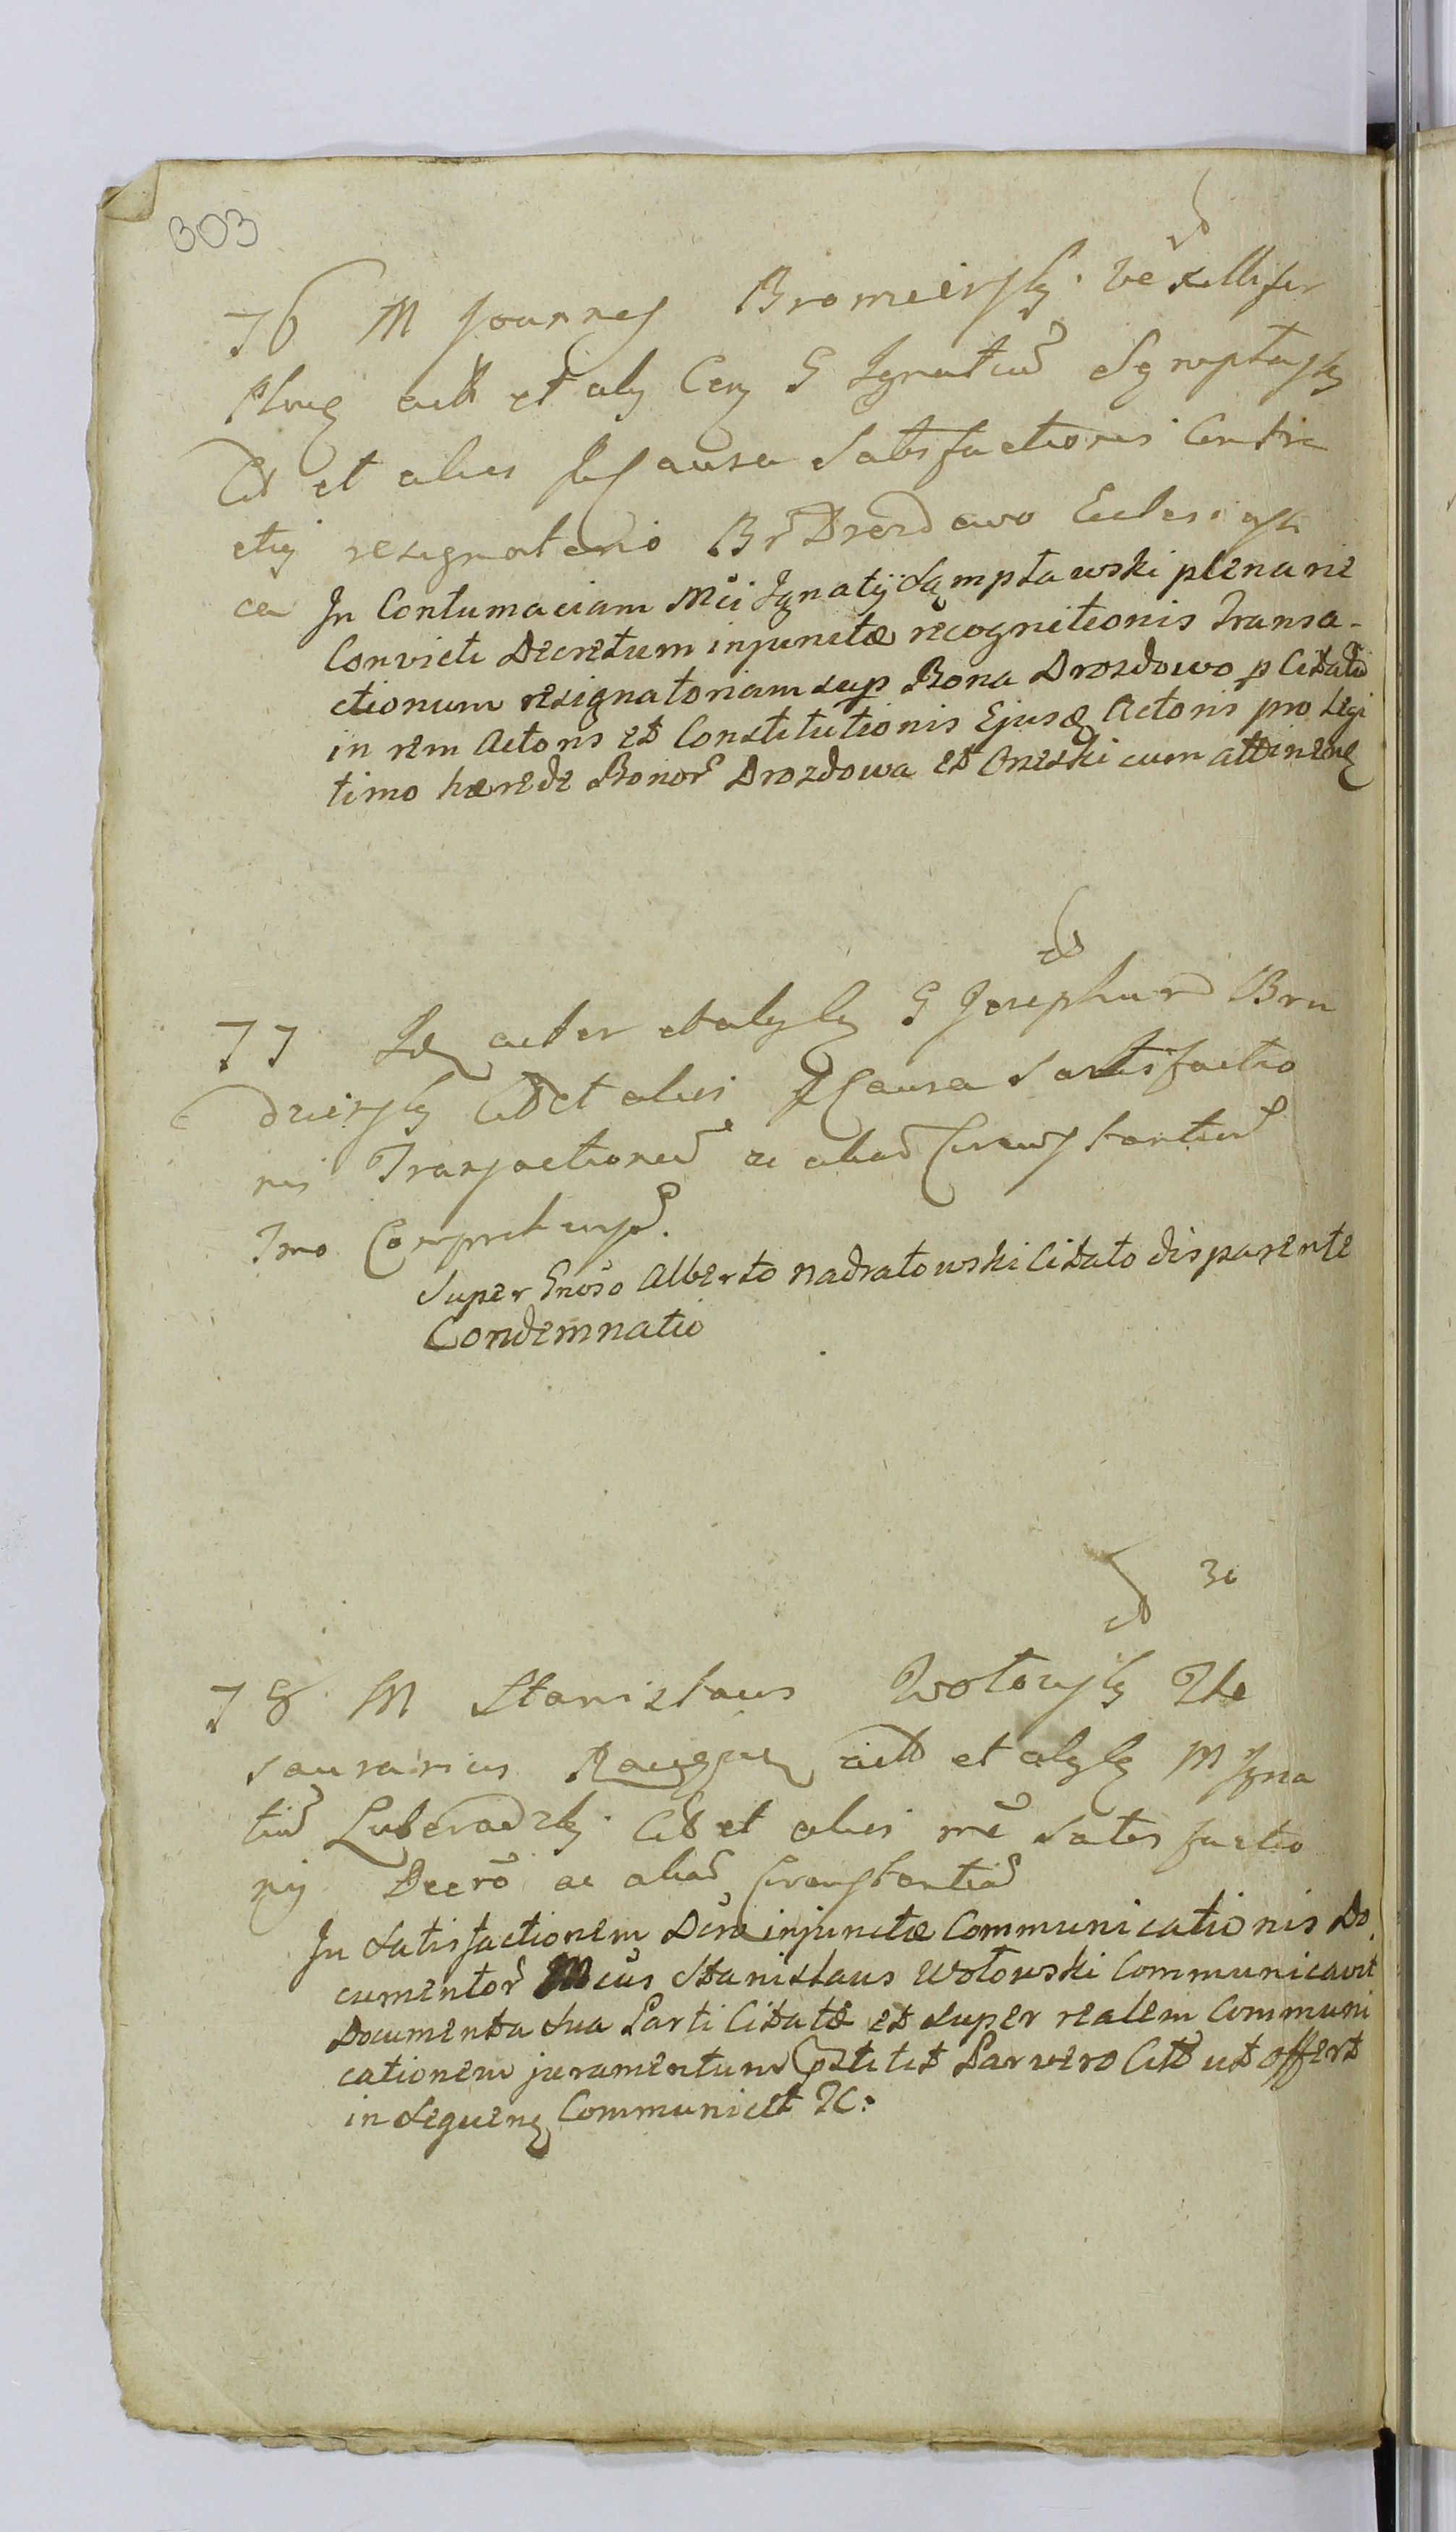 303
76 M Joannes Bromiersky Vexillifer
Plocy act et aly Cery G Ignatiu Sęmptasky
Cit et alios Causa Satisfactionis Contra
ctiy resignatorio Br Drozdowo Ecclesiasti
ca In Contumaciam Mci Ignatij Sąmpławski plenarie
Convicti Decretum injunctæ recognitionis Transa-
ctionum resignatoriam sup Bona Drozdowo p Citatu
in rem Actoris et Constitutionis Ejusq Actoris pro legi
timo hærede Bonor Drozdowa et Orzeski cum attinenq
77 Idq actor et aly Cy G Josephum Bru
dziersky Cit et alios Causa Satisfactio
nis Transactioneu ac aliad Circumstantiud
Imo Comprehensor.
Super Gnoso Alberto Nadratowski Citato disparente
Condemnatio
30
78 M Stanislaus Wołowsky The
saurarius act et aly Cy M Igna
tiu Luberadzky Cit et alios mĕ Satisfactio
nis Decro ac aliad Circumstantiad
In Satisfactionem Dcra injunctæ Communicationis Do
cumentor Mcus Stanislaus Wołowski Communicavit
Documenta sua Parti Citatæ et super realem Communi
cationem juramentum pstitit Pars vero Citt ut offert
in sequenq Communicet &c: